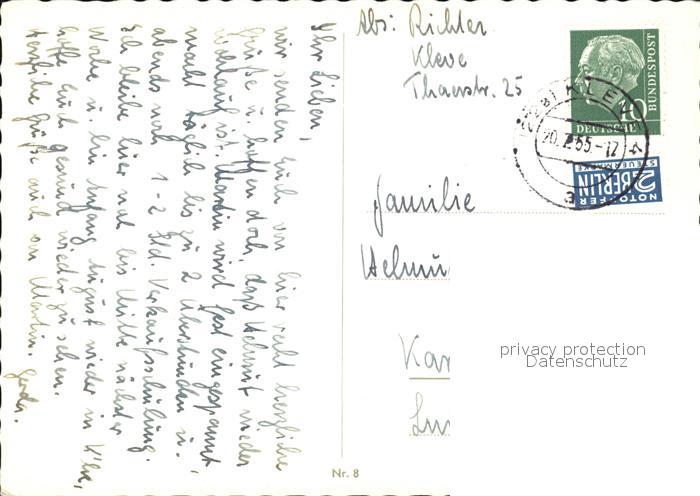 Ihr Lieben,
wir senden Euch von hier recht herzliche
Grüße u. hoffen doch, daß Helmut wieder
wohlauf ist. Martin wird fest eingespannt,
macht täglich bis zu 2 Überstunden u.
abends noch 1-2 Std. Verkaufsschulung.
Ich bleibe hier noch bis Mitte nächster
Woche u. bin Anfang August wieder in Köln,
hoffe Euch gesund wieder zu sehen.
Herzliche Grüße auch von Martin.
Gerda.
Abs: Richter
Kleve
Thaerstr. 25
DEUTSCHE
BUNDESPOST
10
KLEVE
20.7.55.-17
a
NOTOPFER
2 BERLIN
STEUERMARKE
Familie
Helmu
Kar
privacy protection
Datenschutz
Nr. 8